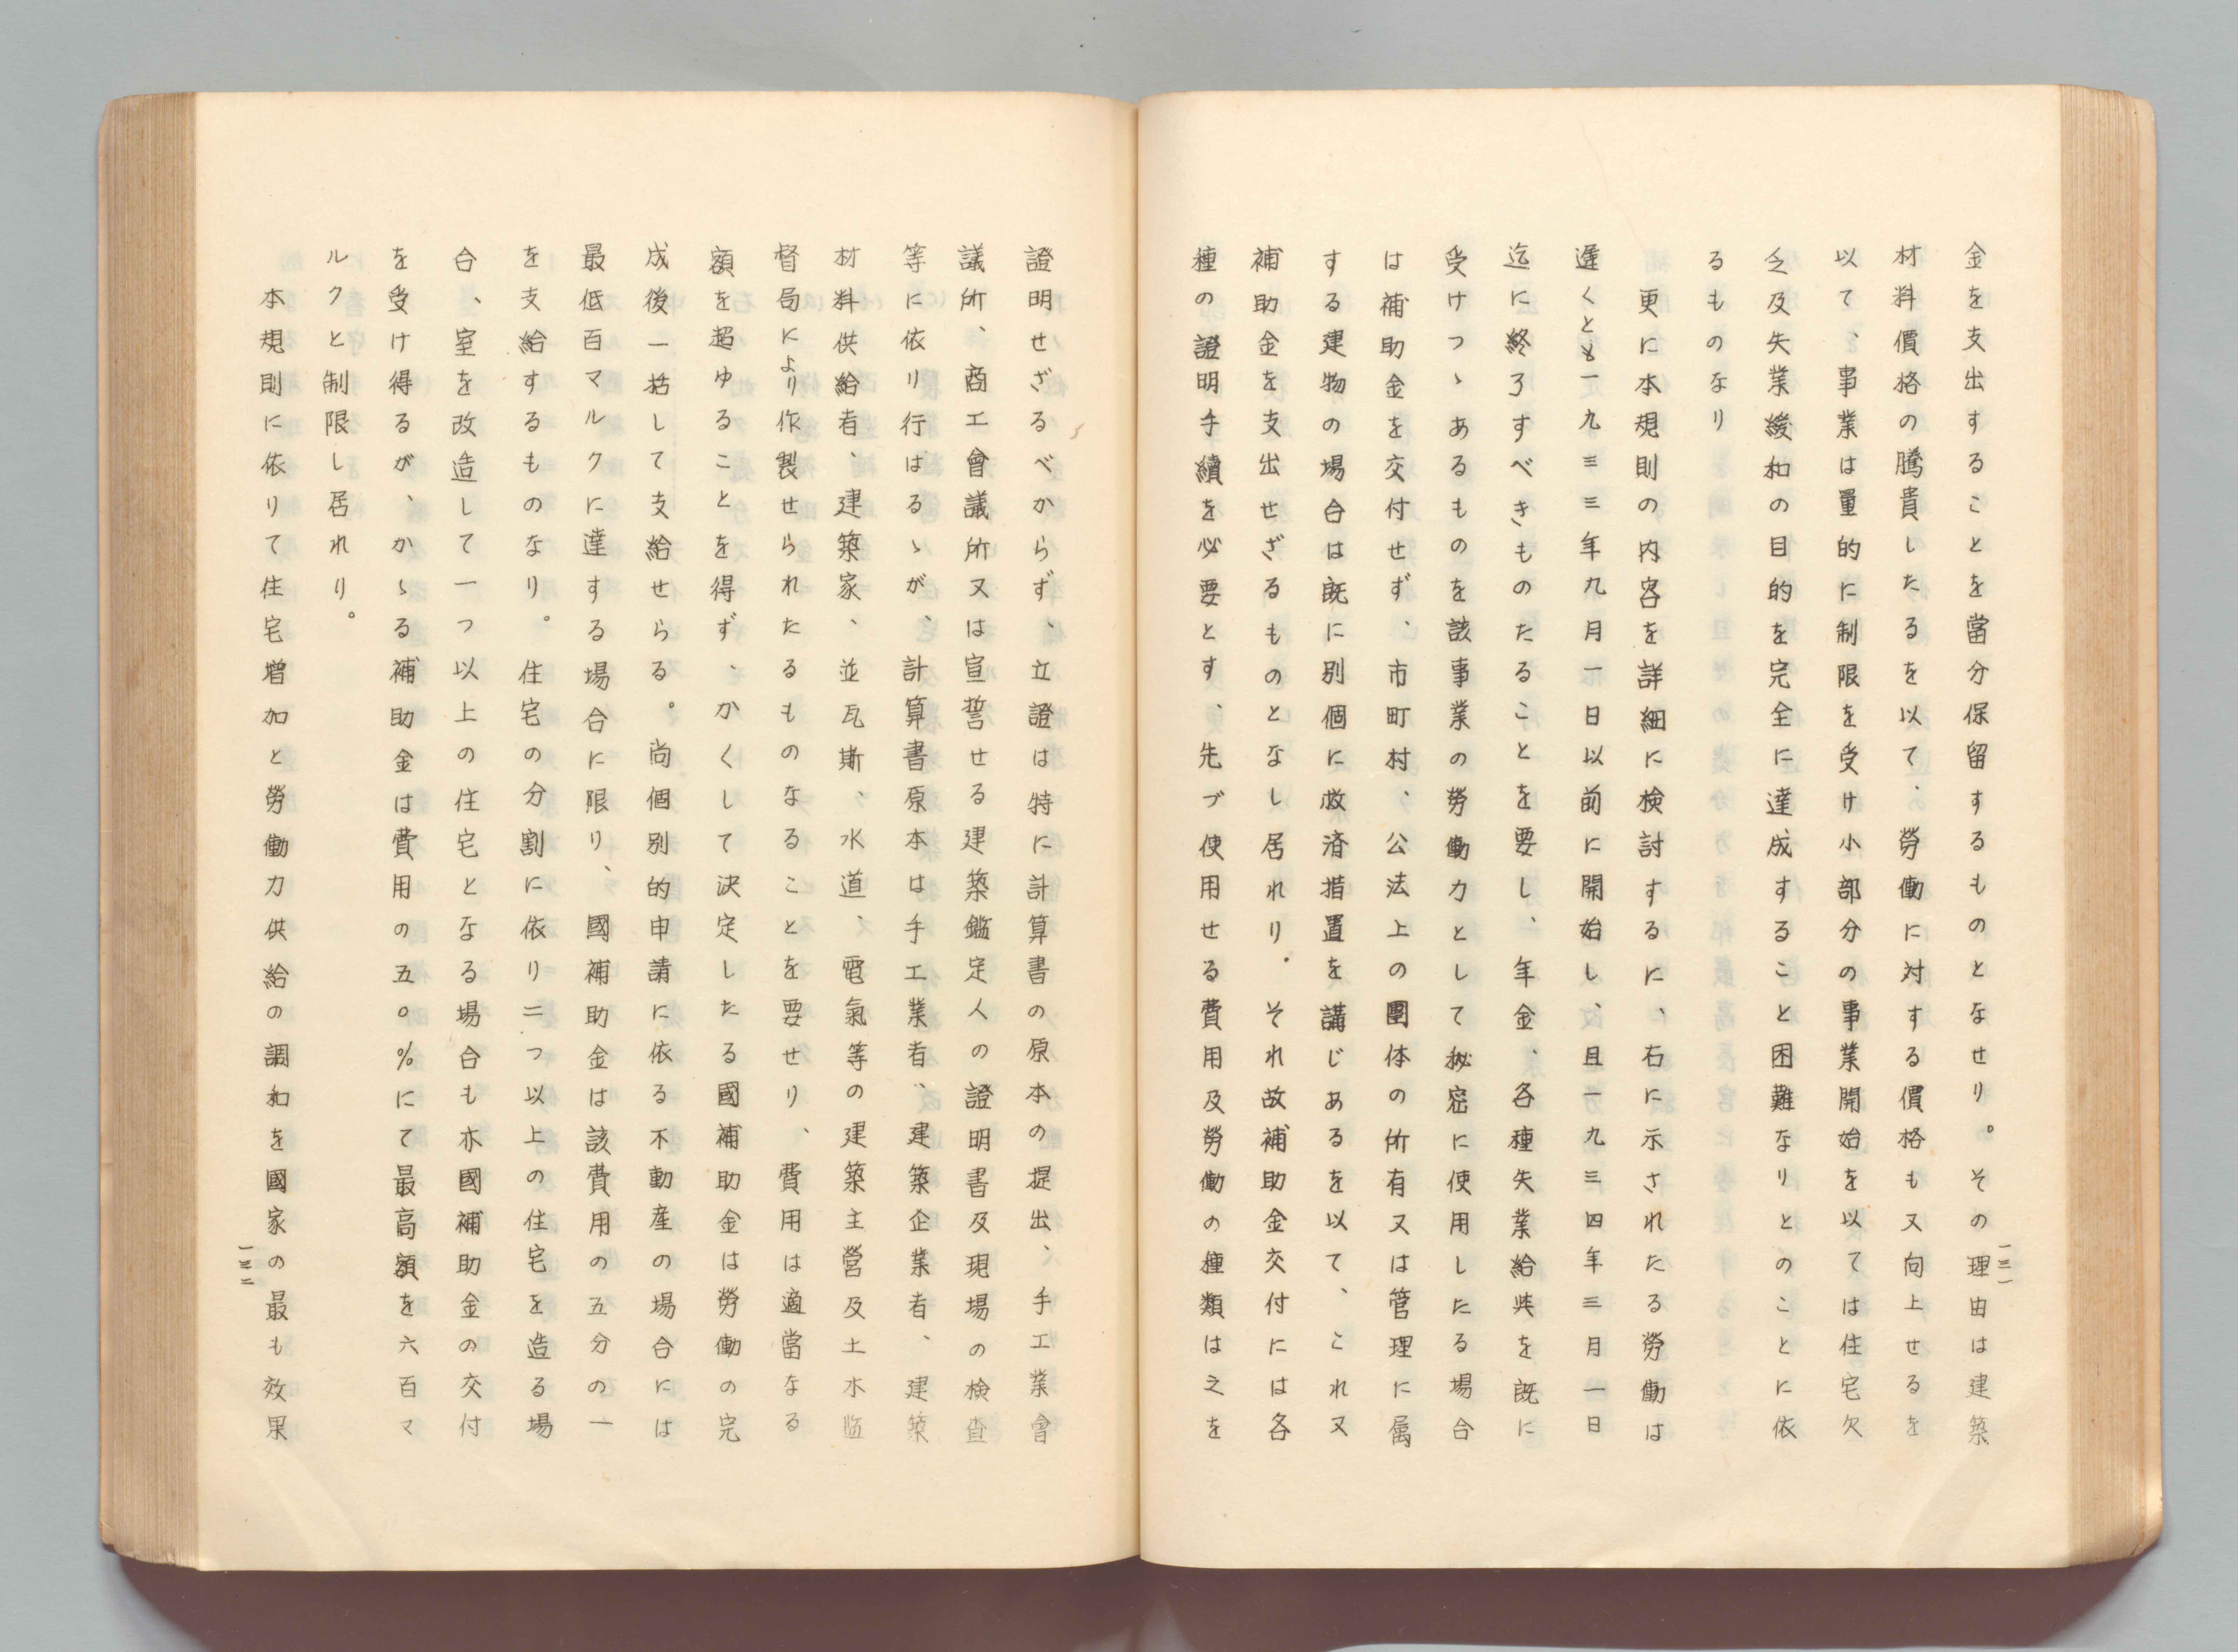 金を支出することを當分保留するものとなせり。その理由は建築
材料價格の騰貴したるを以て、勞働に対する價格も又向上せるを
以て、事業は量的に制限を受け小部分の事業開始を以ては住宅欠
乏及失業緩和の目的を完全に達成すること困難なりとのことに依
るものなり
更に本規則の内容を詳細に検討するに、右に示されたる勞働は
遅くとも一九三三年九月一日以前に開始し、且一九三四年三月一日
迄に終了すべきものたることを要し、年金、各種失業給與を既に
受けつゝあるものを該事業の勞働力として秘密に使用したる場合
は補助金を交付せず、市町村、公法上の團体の所有又は管理に属
する建物の場合は既に別個に救済措置を講じあるを以て、これ又
補助金を支出せざるものとなし居れり。それ故補助金交付には各
種の證明手續を必要とす、先づ使用せる費用及勞働の種類は之を
一三一
證明せざるべからず、立證は特に計算書の原本の提出、手工業會
議所、商工會議所又は宣誓せる建築鑑定人の證明書及現場の検査
等に依り行はるゝが、計算書原本は手工業者、建築企業者、建築
材料供給者、建築家、並瓦斯、水道、電氣等の建築主營及土木監
督局により作製せられたるものなることを要せり、費用は適當なる
額を超ゆることを得ず、かくして決定したる國補助金は勞働の完
成後一括して支給せらる。尚個別的申請に依る不動産の場合には
最低百マルクに達する場合に限り、國補助金は該費用の五分の一
を支給するものなり。住宅の分割に依り二つ以上の住宅を造る場
合、室を改造して一つ以上の住宅となる場合も亦國補助金の交付
を受け得るが、かゝる補助金は費用の五〇％にて最高額を六百マ
ルクと制限し居れり。
本規則に依りて住宅増加と勞働力供給の調和を國家の最も效果
一三二